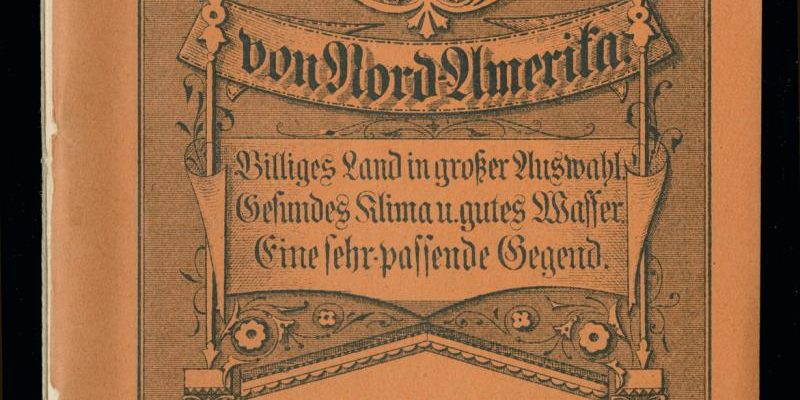 von Nord-Amerika.
Billiges Land in großer Auswahl.
Gesundes Klima u. gutes Wasser.
Eine sehr passende Gegend.